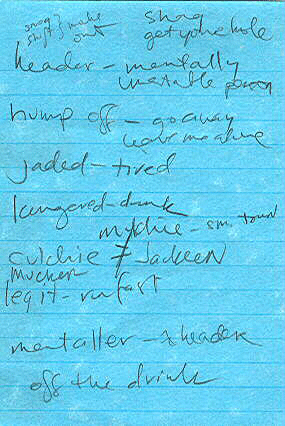 snog } make
shift } out
shag
get your hole
header - mentally
unstable person
hump off - go away
leave me alone
jaded - tired
langered - drunk
mulchie - sm. town
culchie ≠ Jackeen
mucker
leg it - run fast
mentaller - header
off the drink